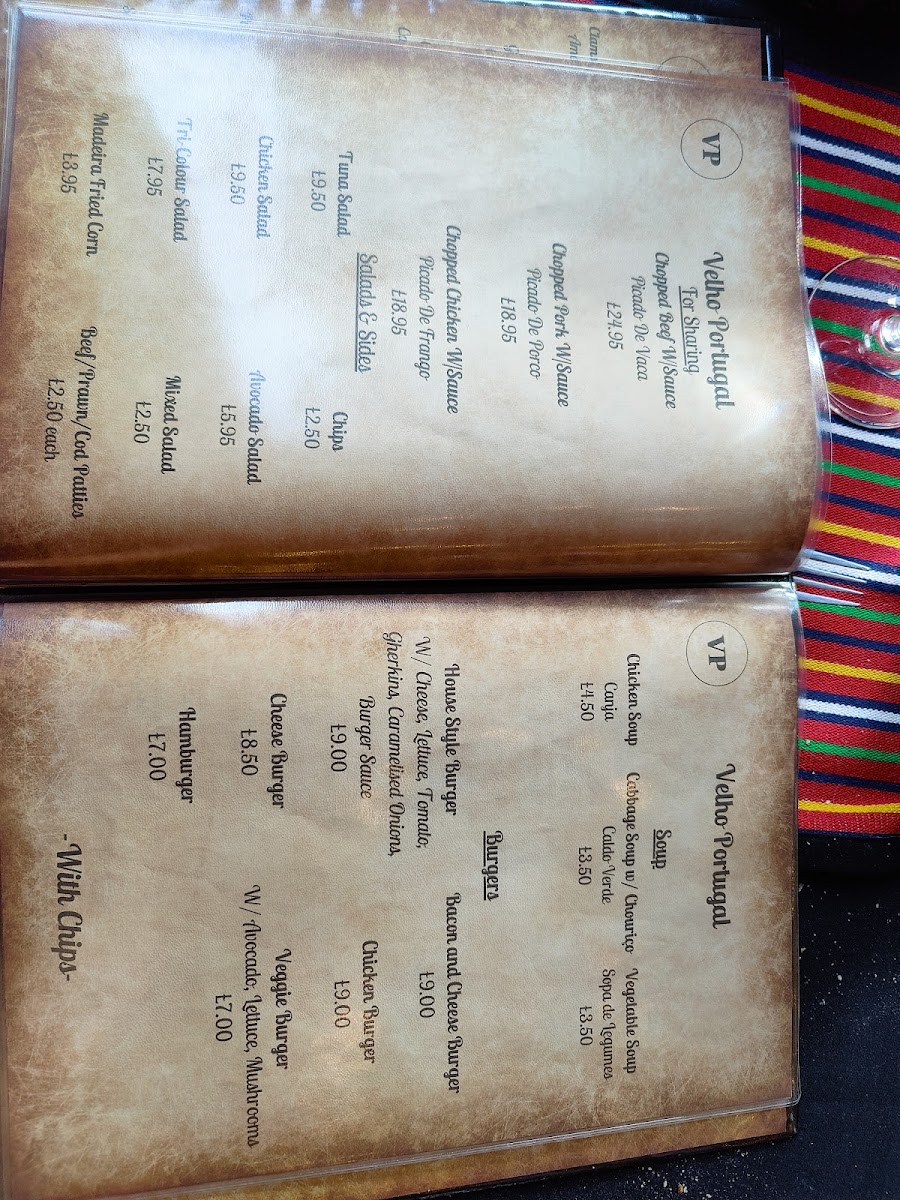 VP
Velho Portugal
For Sharing
Chopped Beef W/Sauce
Picado De Vaca
£24.95
Chopped Pork W/Sauce
Picado De Porco
£18.95
Chopped Chicken W/Sauce
Picado De Frango
£18.95
Salads & Sides
Tuna Salad
£9.50
Chips
£2.50
Chicken Salad
£9.50
Avocado Salad
£5.95
Tri-Colour Salad
£7.95
Mixed Salad
£2.50
Madeira Fried Corn
£3.95
Beef/Prawn/Cod Patties
£2.50 each
VP
Velho Portugal
Soup
Chicken Soup
Canja
£4.50
Cabbage Soup w/ Chouriço
Caldo Verde
£3.50
Vegetable Soup
Sopa de Legumes
£3.50
Burgers
House Style Burger
W/ Cheese, Lettuce, Tomato,
Gherkins, Caramelised Onions,
Burger Sauce
£9.00
Bacon and Cheese Burger
£9.00
Chicken Burger
£9.00
Cheese Burger
£8.50
Veggie Burger
W/ Avocado, Lettuce, Mushrooms
£7.00
Hamburger
£7.00
-With Chips-